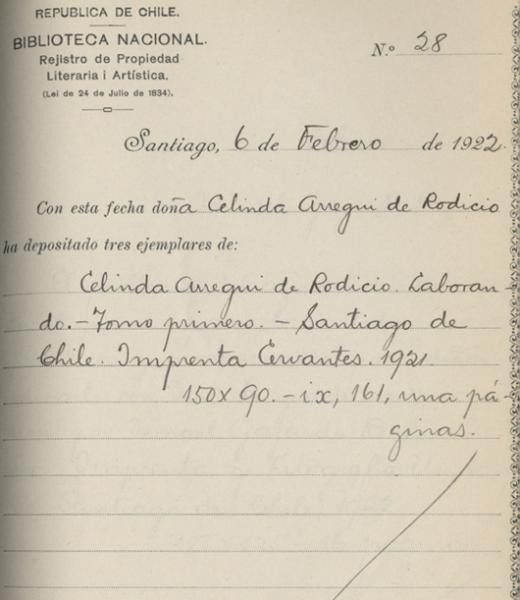 REPUBLICA DE CHILE.
BIBLIOTECA NACIONAL.
Rejistro de Propiedad
Literaria i Artística.
(Lei de 24 de Julio de 1834).
N.º 28
Santiago, 6 de Febrero de 1922.
Con esta fecha doña Celinda Arregui de Rodicio
ha depositado tres ejemplares de:
Celinda Arregui de Rodicio. Laboran-
do.-Tomo primero. - Santiago de
Chile. Imprenta Cervantes. 1921.
150x90.-ix, 161, una pá-
ginas.